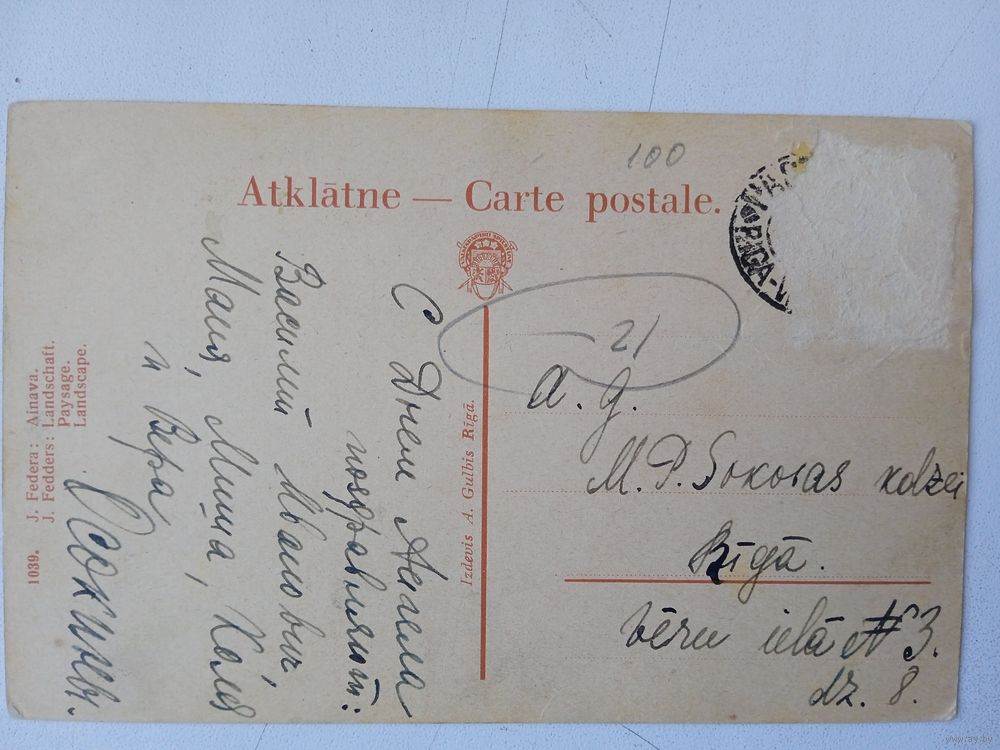 100
Atklātne — Carte postale.
RIGA
С Днем Ангела
поздравляют:
Василий Иванович,
Маня, Миша, Коля
и Вера
1039. J. Federa: Ainava.
J. Fedders: Landschaft.
Paysage.
Landscape.
Izdevis A. Gulbis Rīgā.
21
A. g.
M. P. kdzei
Rīgā.
ielā № 3.
dz. 8.
www.ay.by